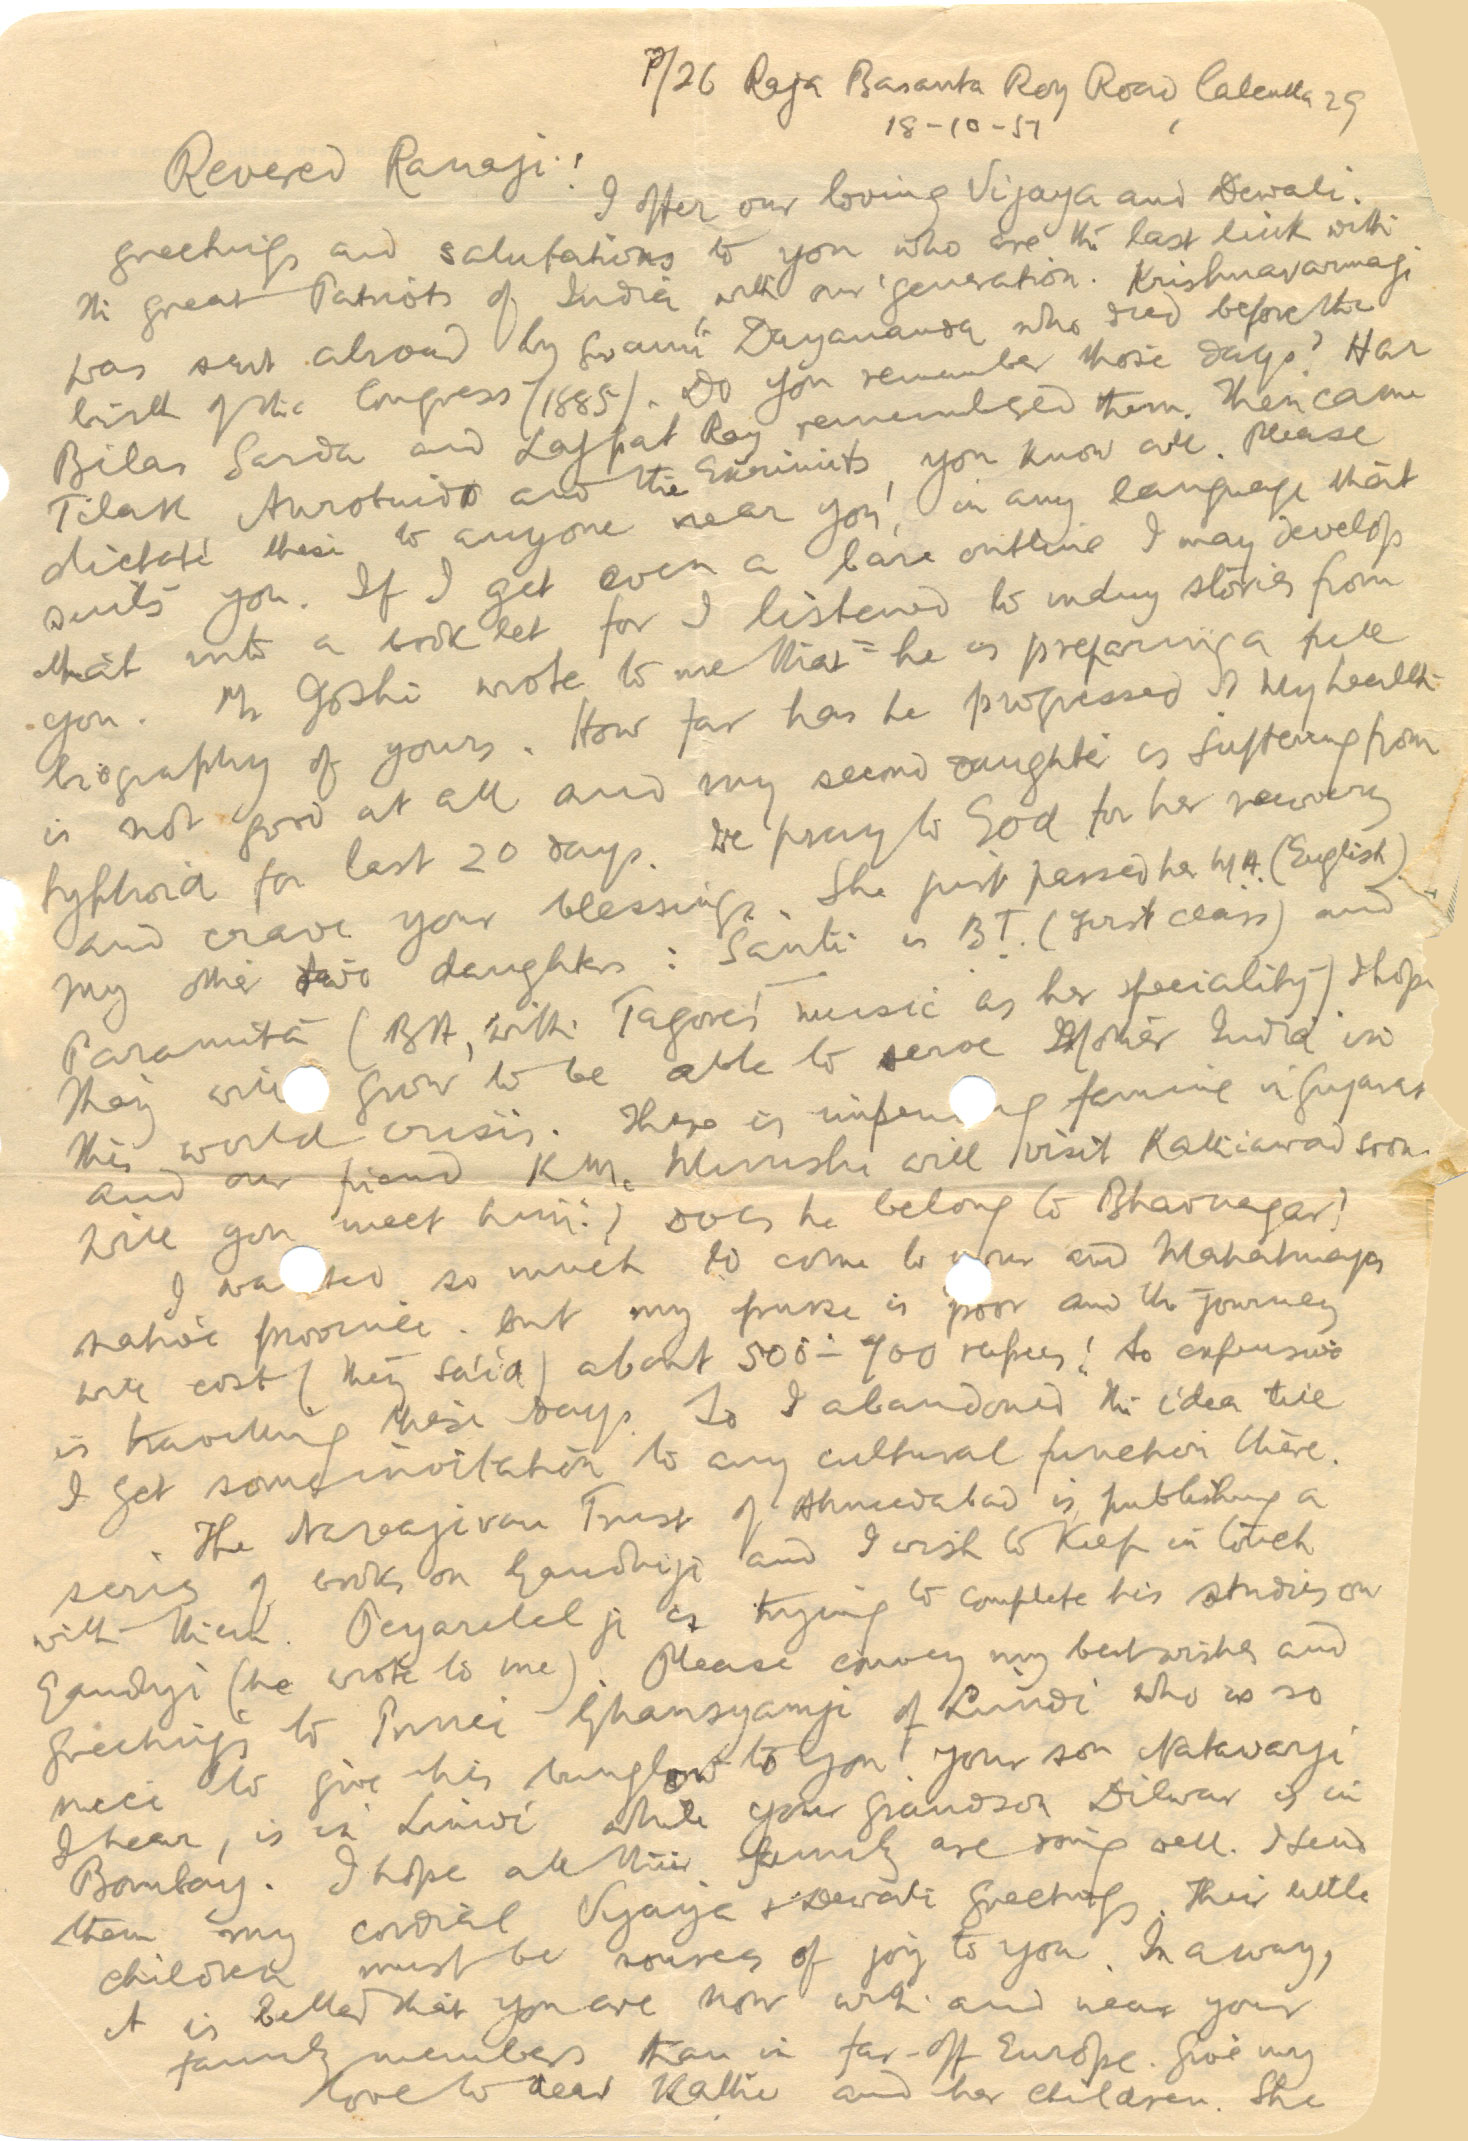 P/26 Raja Basanta Roy Road, Calcutta 29
18-10-51
Revered Ranaji!
I offer our loving Vijaya and Dewali
greetings and salutations to you who are the last link with
the great Patriots of India with our generation. Krishnavarmaji
was sent abroad by Swami Dayananda who died before the
birth of the Congress (1885). Do you remember those days? Har
Bilas Sarda and Lajpat Ray remembered them. Then came
Tilak Aurobindo and the Extremists, you know all. Please
dictate these to anyone near you, in any language that
suits you. If I get even a bare outline I may develop
that into a booklet for I listened to many stories from
you. Mr Joshi wrote to me that he is preparing a full
biography of yours. How far has he progressed? My health
is not good at all and my second daughter is suffering from
typhoid for last 20 days. We pray to God for her recovery
and crave your blessings. She just passed her M.A. (English)
my other two daughters: Santi is B.T. (first class) and
Paramita (BA, with Tagore's music as her speciality) I hope
they will grow to be able to serve Mother India in
this world crisis. There is impending famine in Gujarat
and our friend K.M. Munshi will visit Kathiawad soon.
Will you meet him? Does he belong to Bhavnagar?
I wanted so much to come to your and Mahatmaji's
native province. but my purse is poor and the journey
will cost (they said) about 500-700 rupees! So expensive
is travelling these days. So I abandoned the idea till
I get some invitation to any cultural function there.
The Navajivan Trust of Ahmedabad is publishing a
series of books on Gandhiji and I wish to keep in touch
with them. Peyarelal ji is trying to complete his studies on
Gandhiji (he wrote to me). Please convey my best wishes and
greetings to Prince Ghansyamji of Limdi who is so
nice to give his bunglow to you! your son Natawarji
I hear, is in Limdi while your grandson Dilwar is in
Bombay. I hope all their family are doing well. I send
them my cordial Vijaya & Dewali greetings. Their little
children must be sources of joy to you. In a way,
it is better that you are now with and near your
family members than in far-off Europe. Give my
love to dear Kathie and her children. She